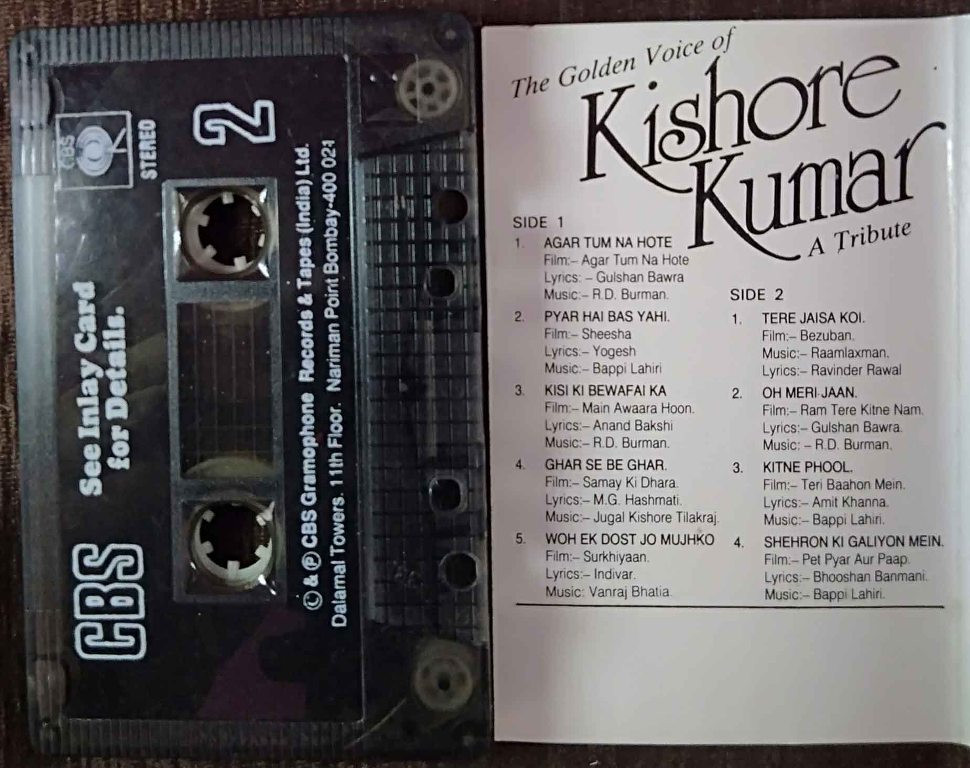 CBS
STEREO
2
See Inlay Card
for Details.
CBS
© & ℗ CBS Gramophone Records & Tapes (India) Ltd.
Dalamal Towers. 11th Floor. Nariman Point Bombay-400 021
The Golden Voice of
Kishore
Kumar
A Tribute
SIDE 1
1. AGAR TUM NA HOTE
Film:– Agar Tum Na Hote
Lyrics: – Gulshan Bawra
Music:– R.D. Burman.
2. PYAR HAI BAS YAHI.
Film:– Sheesha
Lyrics:– Yogesh
Music:– Bappi Lahiri
3. KISI KI BEWAFAI KA
Film:– Main Awaara Hoon.
Lyrics:– Anand Bakshi
Music:– R.D. Burman.
4. GHAR SE BE GHAR.
Film:– Samay Ki Dhara.
Lyrics:– M.G. Hashmati.
Music:– Jugal Kishore Tilakraj.
5. WOH EK DOST JO MUJHKO
Film:– Surkhiyaan.
Lyrics:– Indivar.
Music: Vanraj Bhatia.
SIDE 2
1. TERE JAISA KOI.
Film:– Bezuban.
Music:– Raamlaxman.
Lyrics:– Ravinder Rawal
2. OH MERI JAAN.
Film:– Ram Tere Kitne Nam.
Lyrics:– Gulshan Bawra.
Music: – R.D. Burman.
3. KITNE PHOOL.
Film:– Teri Baahon Mein.
Lyrics:– Amit Khanna.
Music:– Bappi Lahiri.
4. SHEHRON KI GALIYON MEIN.
Film:– Pet Pyar Aur Paap.
Lyrics:– Bhooshan Banmani.
Music:– Bappi Lahiri.